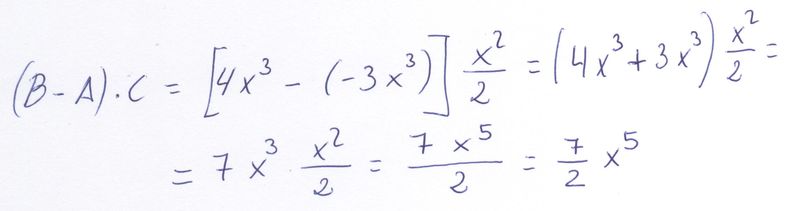 (B - A) · C = [4x³ - (-3x³)] x²/2 = (4x³ + 3x³) x²/2 =
= 7x³ x²/2 = 7x⁵/2 = 7/2 x⁵